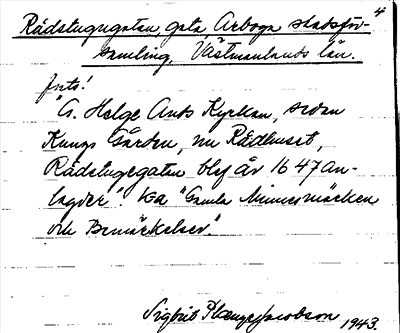 4
Rådstugugatan, gata, Arboga stadsför-
samling, Västmanlands län.
"S. Helge Ands Kyrkan, sedan
Kungs Gården, nu Rådhuset,
Rådstugegatan blef år 1647 an-
lagder". "Gamla Minnesmärken
och Bemärkelser."
Sigbrit Plænge Jacobson
1943.